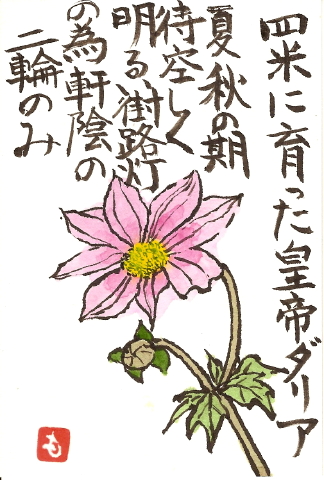 四米に育った皇帝ダリア
夏秋の期
待空しく
明るい街路灯
の為軒陰の
二輪のみ
も